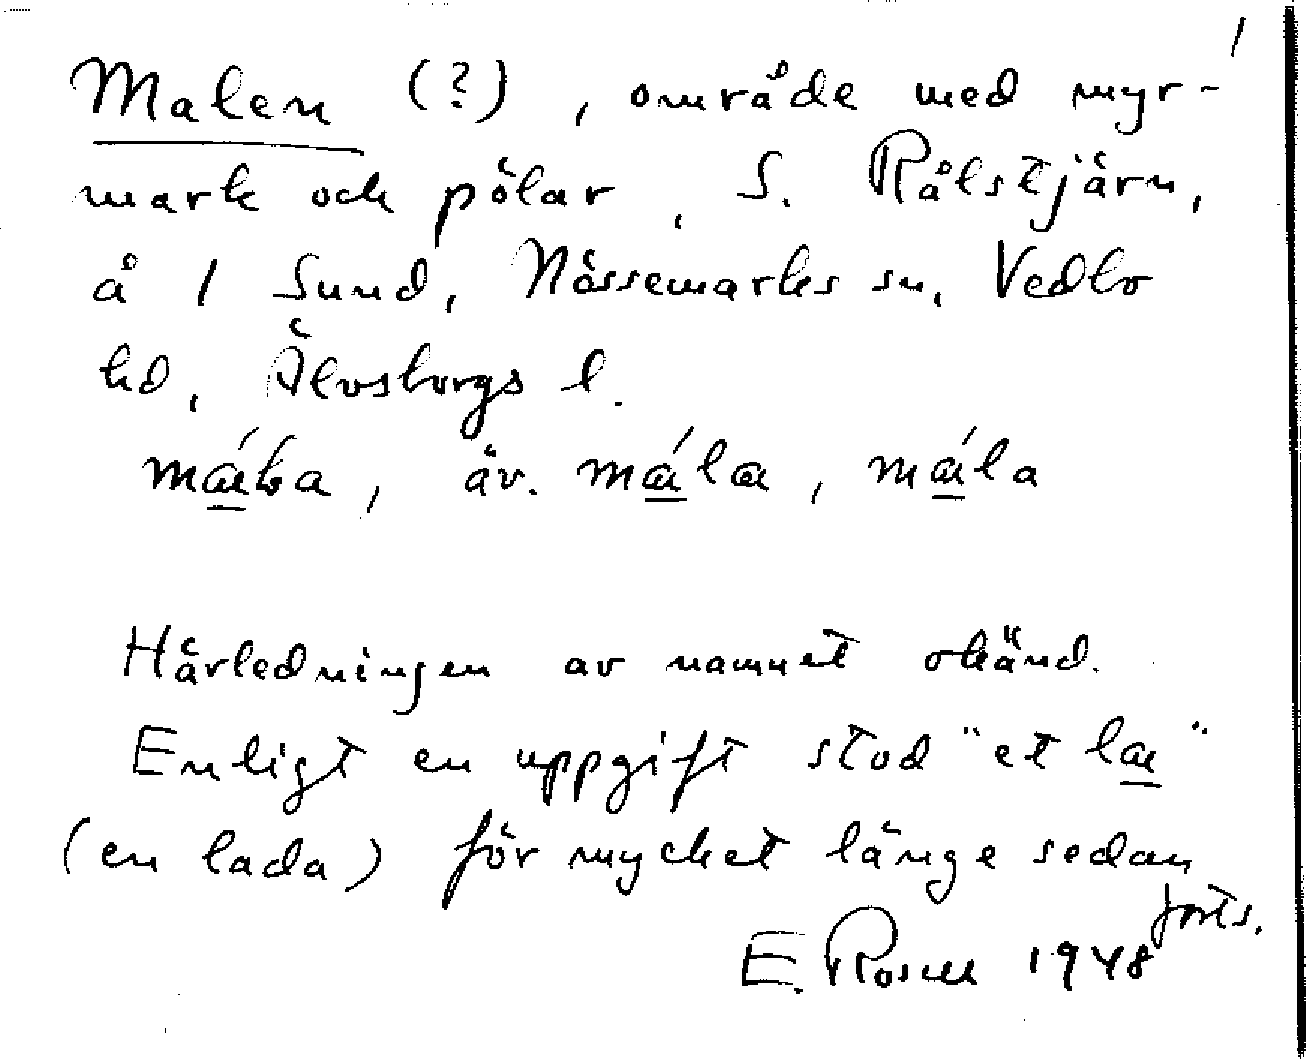 1
Malen (?), område med myr-
mark och pölar, S. Rålstjärn,
å 1 Sund, Nössemarks sn, Vedbo
hd, Älvsborgs l.
máƚa, äv. mála, mála
Härledningen av namnet okänd.
Enligt en uppgift stod "et la"
(en lada) för mycket länge sedan
forts.
E. Rosell 1948